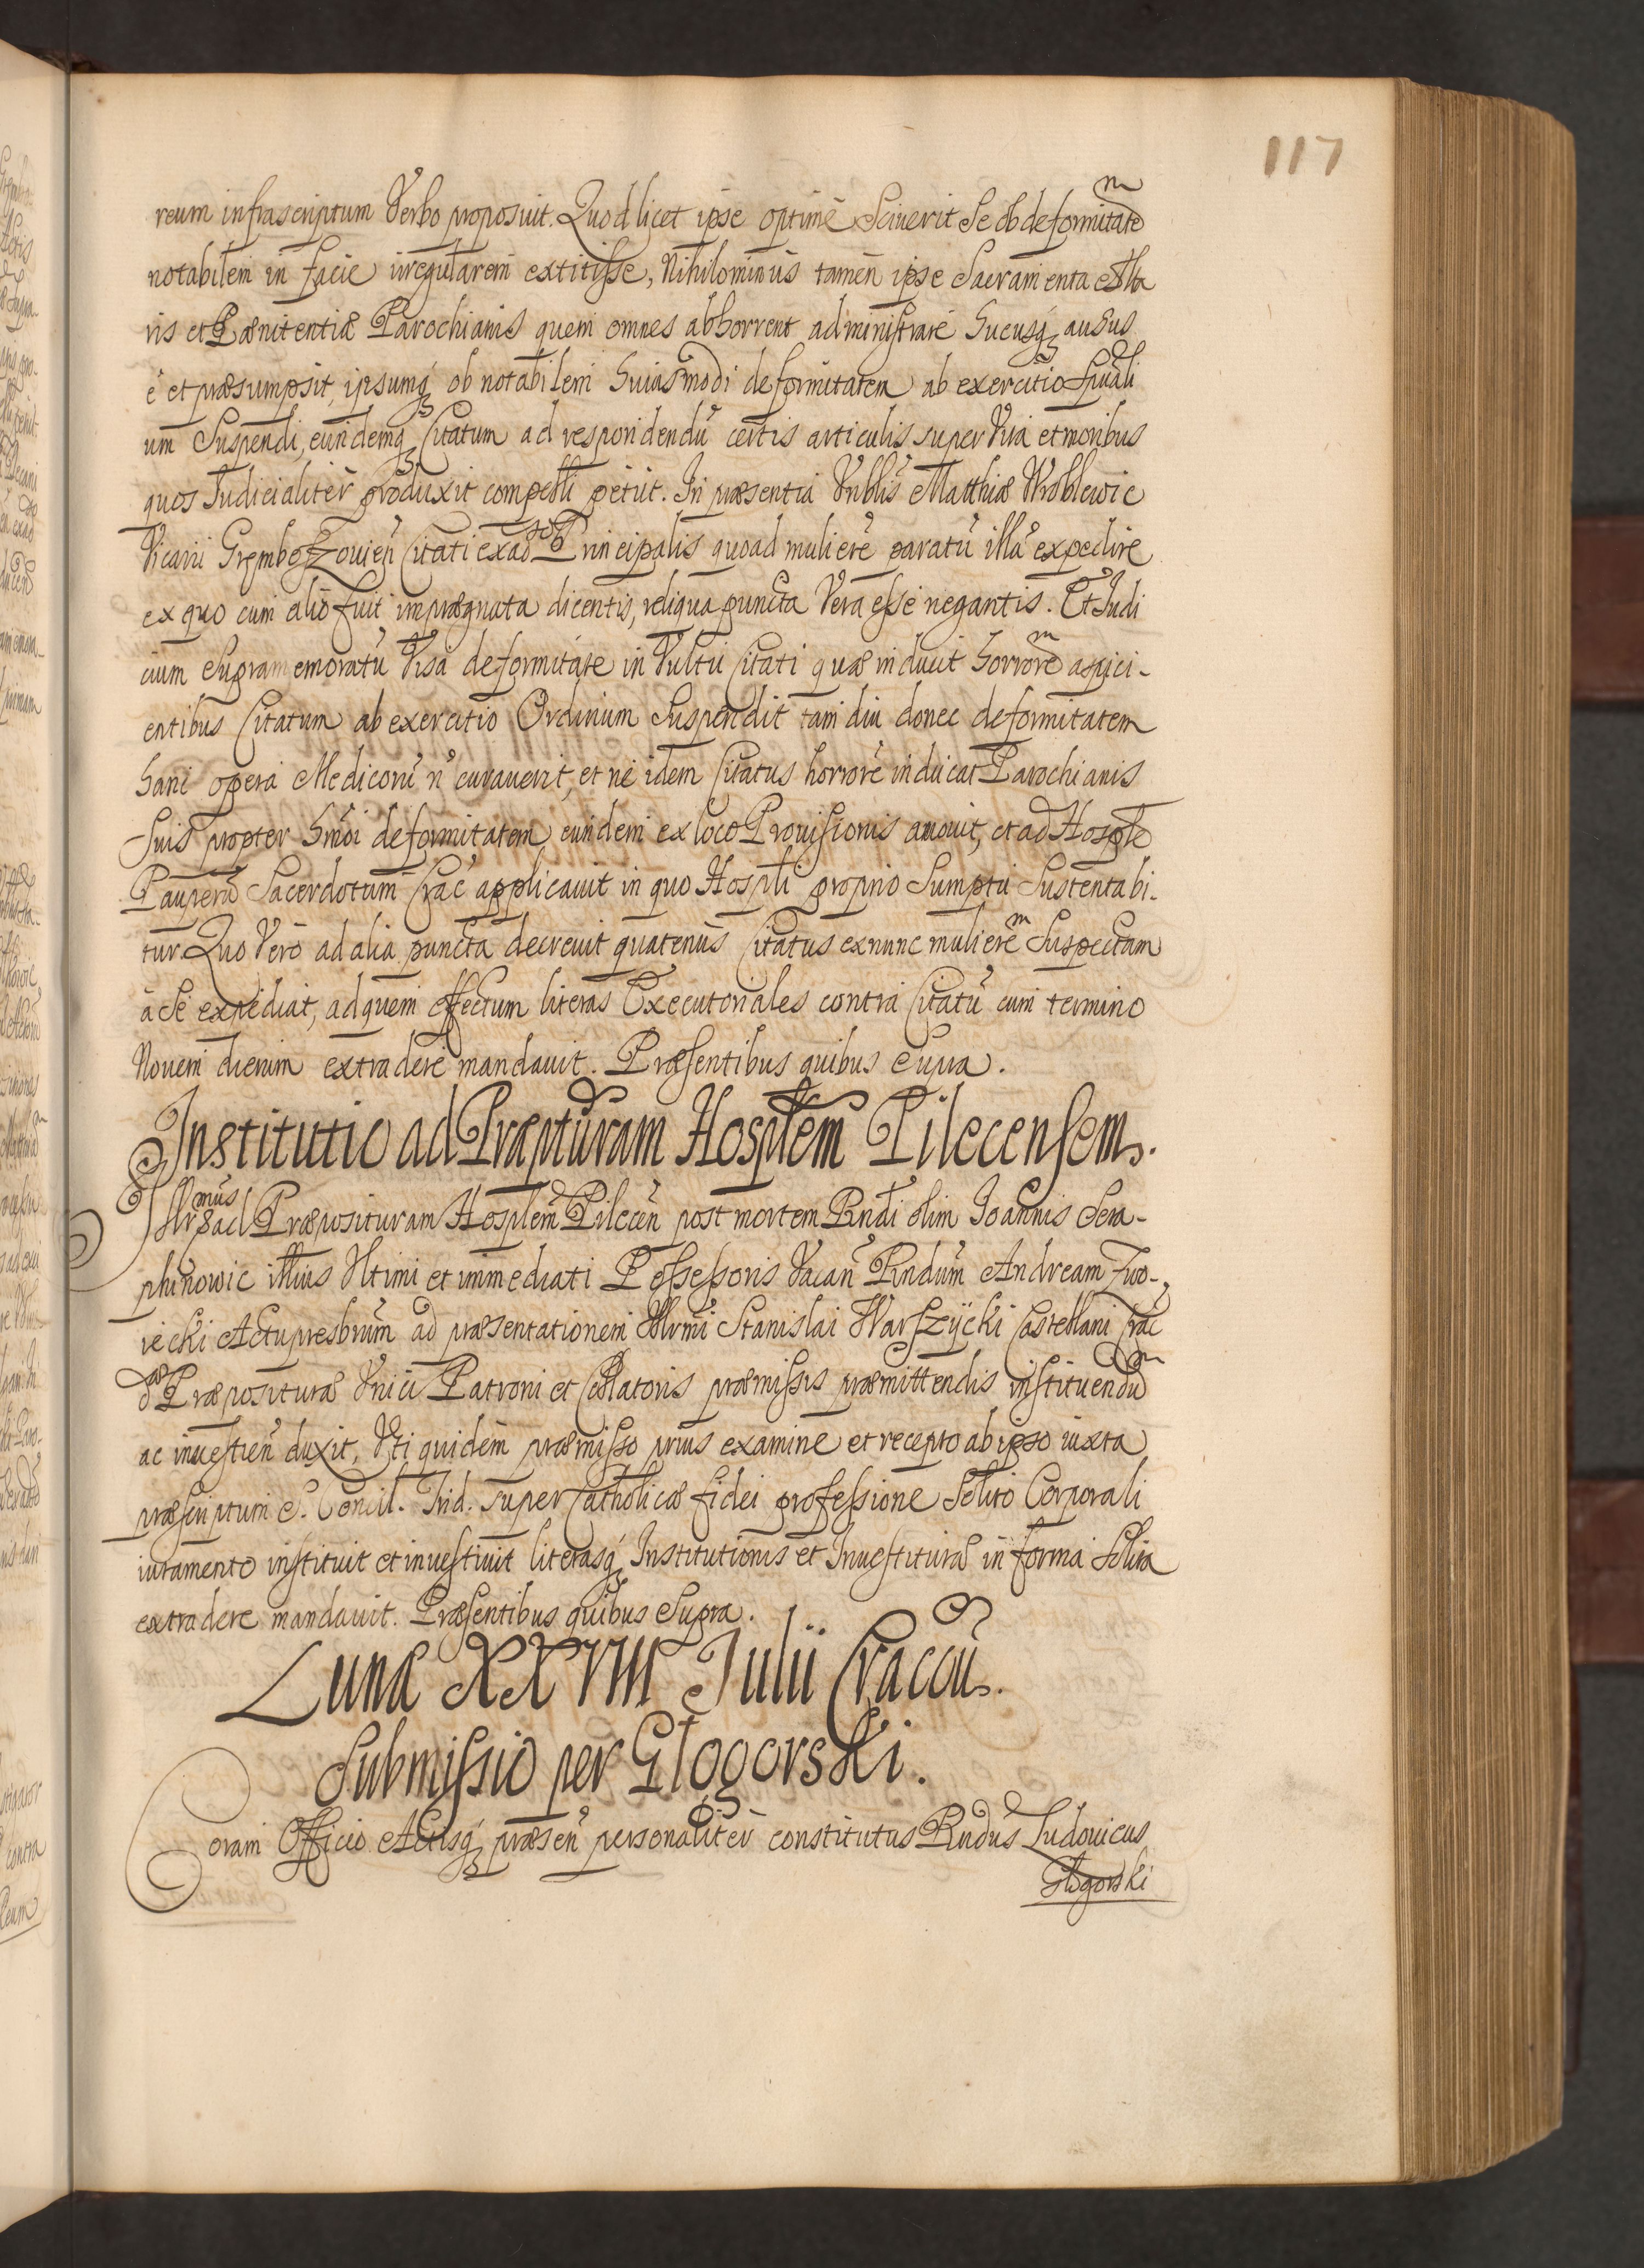 117
reum infrascriptum Verbo proposuit. Quod licet ipse optimè Sciuerit Se ob deformitatē
notabilem in facie irregularem extitisse, Nihilominus tamen ipse Sacramenta Alta
ris et Pænitentiæ Parochianis quem omnes abhorrent administrare hucusq; ausus
ē et præsumpsit, ipsumq; ob notabilem huiusmodi deformitatem ab exercitio spūali
um Suspendi, eundemq; Citatum ad respondendū certis articulis super Vita et moribus
quos Iudicialiter produxit compelli petiit. In præsentia Vnblis Matthiæ Wroblewic
Vicarii Grembofzouien̄ Citati ex adso Principalis quoad mulierē paratū illā expedire
ex quo cum alio fuit imprægnata dicentis, reliqua puncta Vera esse negantis. Et Iudi
cium Supramemoratū Visa deformitate in Vultu Citati quæ inducit horrorem aspici-
entibus Citatum ab exercitio Ordinum Suspendit tam diu donec deformitatem
hanc opera Medicorū n̄ curauerit, et ne idem Citatus horrorē inducat Parochianis
Suis propter hmōi deformitatem eundem ex loco Prouisionis amouit, et ad Hosple
Pauperū Sacerdotum Crac̄ applicauit in quo Hospli proprio Sumptu Sustentabi-
tur. Quo Vero ad alia puncta decreuit quatenus Citatus ex nunc mulierem Suspectam
à Se expediat, ad quem effectum literas Executoriales contra Citatū cum termino
Nouem dierum extradere mandauit. Præsentibus quibus Supra.
Institutio ad Præpturam Hosplem Pilecensem.
Illrmus ad Præposituram Hosplem̄ Pilecen̄ post mortem Rndi olim Joannis Sera-
phinowic illius Vltimi et immediati Possessoris Vacan̄ Rndum Andream Zwo-
iecki Actupresbrum ad præsentationem Illrmi Stanislai Warszÿcki Castellani Crac̄
dæ Præposituræ Vnici Patroni et Collatoris præmissis præmittendis instituendum
ac inuestien̄ duxit, Vti quidem præmisso prius examine et recepto ab ipso iuxta
præscriptum S. Concil. Trid. super Catholicæ fidei professione Solito Corporali
iuramento instituit et inuestiuit literasq; Institutionis et Inuestituræ in forma Solita
extradere mandauit. Præsentibus quibus Supra.
Lunæ XXVIII Iulii Craccu.
Submissio per Głogorski.
Coram Officio Actisq; præsen̄ personaliter constitutus Rndus Ludouicus
Głogorski